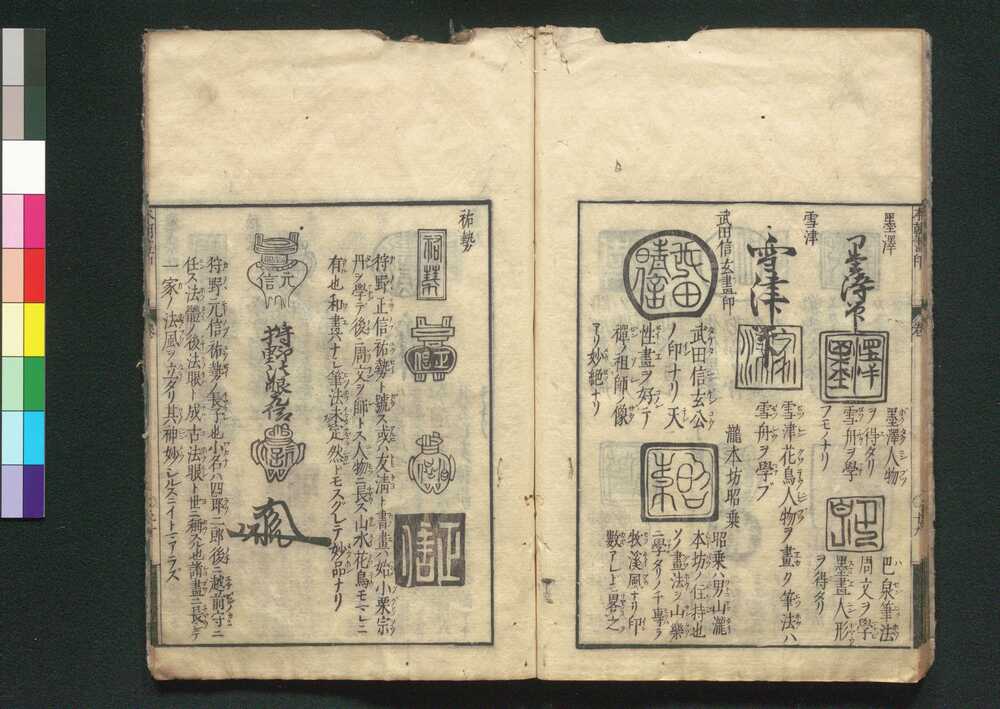 墨澤
墨澤人物
ヲ得タリ
雪舟ヲ學
フモノナリ
巴泉筆法
周文ヲ學
墨畫人形
ヲ得タリ
雪津
雪津
雪津花鳥人物ヲ畫ク筆法ハ
雪舟ヲ學ブ
武田信玄畫印
武田信玄公
ノ印ナリ天
性畫ヲ好テ
禪ノ祖師ノ像
アリ妙絶ナリ
瀧本坊昭乗
昭乗ハ男山瀧
本坊ノ住持也
ソノ畫法ヲ山樂
ニ學
牧溪風ナリ印
數アレ𪜈畧之
祐勢
狩野正信祐勢ト號ス或ハ友清ト書畫ハ始小栗宗
丹ヲ學テ後ニ周文ヲ師トス人物ニ長ス山水花鳥モマレニ
有也和畫ハナシ筆法未定然𪜈モスグレテ妙品ナリ
元信
狩野元信祐勢ノ長子也小名ハ四郎二郎後ニ越前守ニ
任ス法體ノ後法眼ト成古法眼ト世ニ稱ス也諸畫ニ長シテ
一家ノ法風ヲ立タリ其神妙シルスニイトマアラズ